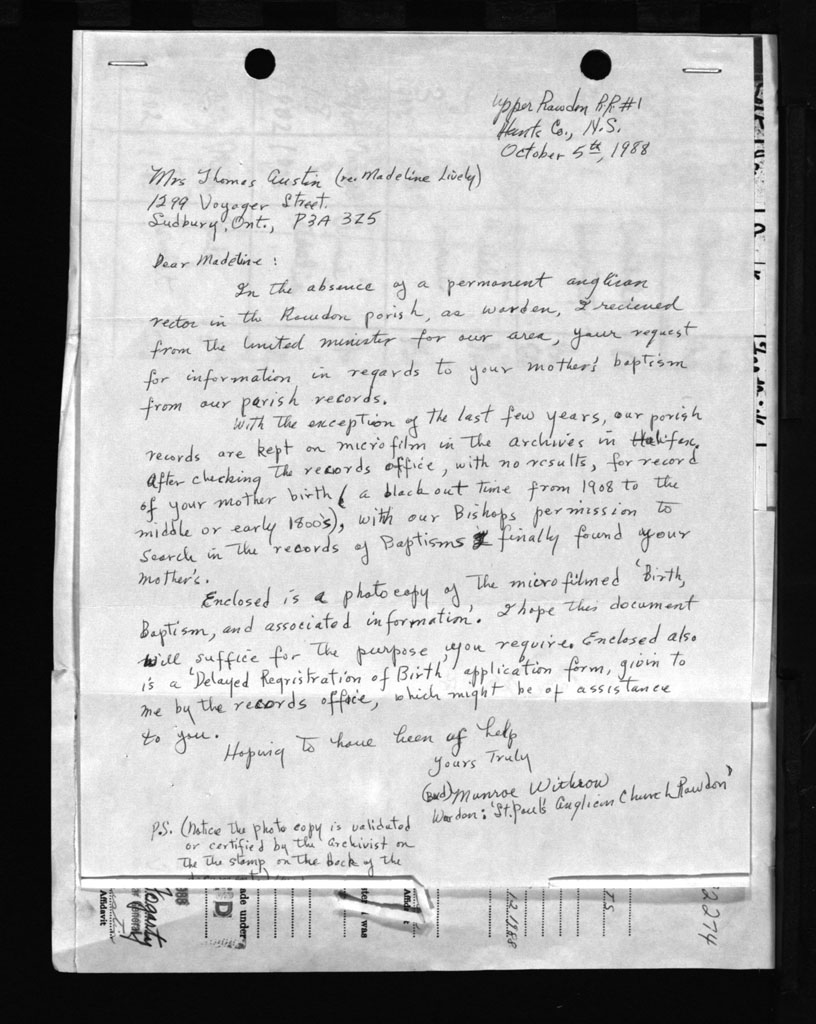 Upper Rawdon R.R.#1
Hants Co., N.S.
October 5th, 1988
Mrs Thomas Austin (re. Madeline Lively)
1299 Voyager Street.
Sudbury, Ont., P3A 3Z5
Dear Madeline:
In the absence of a permanent anglican
rector in the Rawdon parish, as warden, I recieved
from the United minister for our area, your request
for information in regards to your mother's baptism
from our parish records.
With the exception of the last few years, our parish
records are kept on microfilm in the archives in Halifax.
After checking the records office, with no results, for record
of your mother birth (a black out time from 1908 to the
middle or early 1800's), with our Bishops permission to
search in the records of Baptisms I finally found your
mother's.
Enclosed is a photocopy of the microfilmed 'Birth,
Baptism, and associated information. I hope this document
will suffice for the purpose you require. Enclosed also
is a 'Delayed Regristration of Birth' application form, givin to
me by the records office, which might be of assistance
to you.
Hoping to have been of help
Yours Truly
(Bud) Munroe Withrow
Warden: 'St. Paul's Anglican Church Rawdon'
P.S. (Notice the photo copy is validated
or certified by the archivist on
the the stamp on the back of the
Affidavit
ade under
D
was
12 1988
J.S.
2274